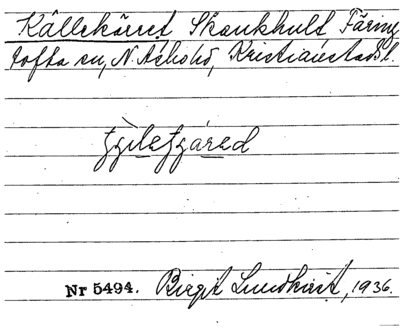 Källekärret Skånkhult Färing
tofta sn, N. Åsbo hd, Kristianstads l.
Nr 5494. Birgit Lundkvist, 1936.